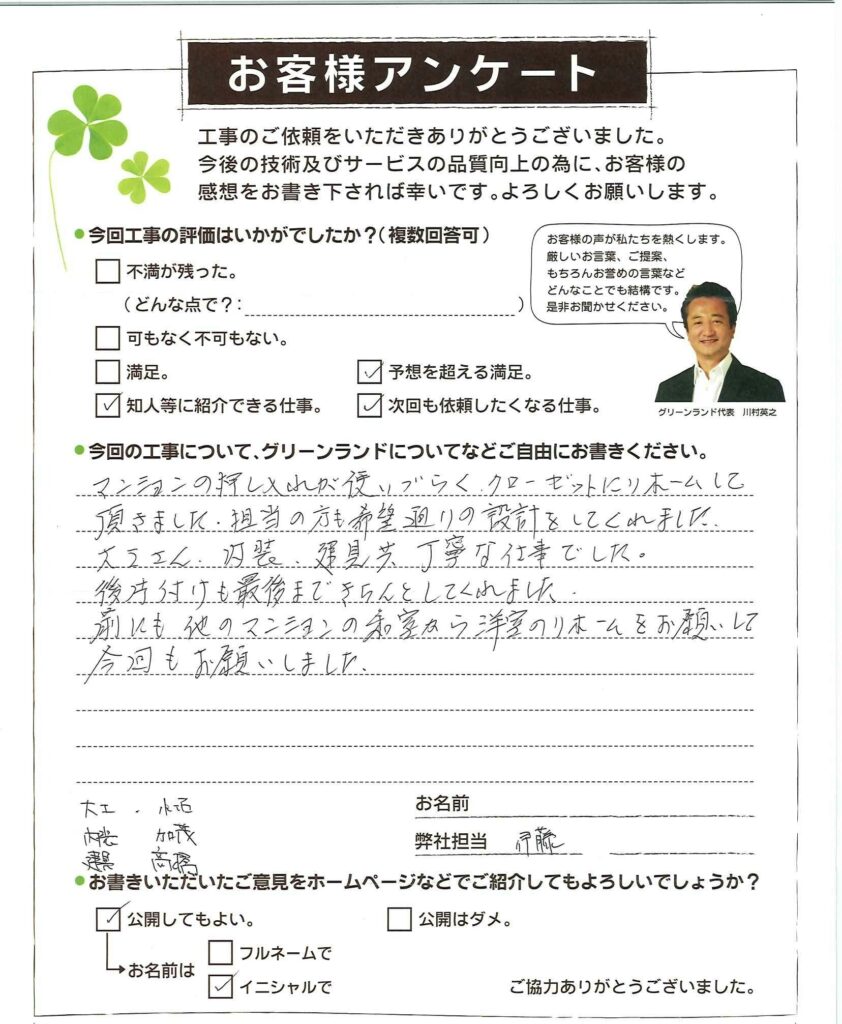 お客様アンケート
工事のご依頼をいただきありがとうございました。
今後の技術及びサービスの品質向上の為に、お客様の
感想をお書き下されば幸いです。よろしくお願いします。
今回工事の評価はいかがでしたか？(複数回答可)
不満が残った。
(どんな点で？: )
可もなく不可もない。
満足。
予想を超える満足。
知人等に紹介できる仕事。
次回も依頼したくなる仕事。
お客様の声が私たちを熱くします。
厳しいお言葉、ご提案、
もちろんお誉めの言葉など
どんなことでも結構です。
是非お聞かせください。
グリーンランド代表 川村英之
今回の工事について、グリーンランドについてなどご自由にお書きください。
マンションの押し入れが使いづらく、クローゼットにリホームして
頂きました。担当の方も希望通りの設計をしてくれました。
大工さん、内装、建具共丁寧な仕事でした。
後片付けも最後まできちんとしてくれました。
前にも他のマンションの和室から洋室のリホームをお願いして
今回もお願いしました。
大工
内装 加茂
建具 高橋
お名前
弊社担当 伊藤
お書きいただいたご意見をホームページなどでご紹介してもよろしいでしょうか？
公開してもよい。
公開はダメ。
お名前は
フルネームで
イニシャルで
ご協力ありがとうございました。